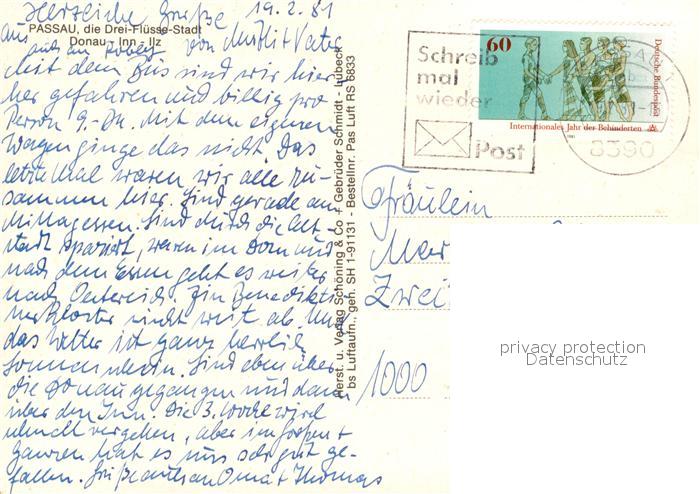 Herzliche Grüße 19.2.81
PASSAU, die Drei-Flüsse-Stadt
Donau - Inn - Ilz
aus von Mutti + Vater
auch an Robert
Mit dem Bus sind wir hier
her gefahren und billig pro
Person 9,- DM. Mit dem eigenen
Wagen ginge das nicht. Das
letzte Mal waren wir alle zu-
sammen hier. Sind gerade am
Mittagessen. Sind durch die Alt-
stadt spaziert, waren im Dom und
nach dem Essen geht es weiter
nach Oesterreich. Ein Benedikti
nerkloster nicht weit ab. Und
das Wetter ist ganz herrlich
Sonnenschein. Sind eben über
die Donau gegangen und dann
über den Inn. Die 3. Woche wird
schnell vergehen, aber im großen +
ganzen hat es uns sehr gut ge-
fallen. Grüße auch an Oma + Thomas
Herst. u. Verlag Schöning & Co + Gebrüder Schmidt - Lübeck
bs Luftaufn., geh: SH 1-91131 - Bestellnr. Pas Luft RS 6833
Schreib
mal
wieder
Post
60
Deutsche Bundespost
Internationales Jahr der Behinderten
1981
8390
Fräulein
Mar
Zwei
1000
privacy protection
Datenschutz